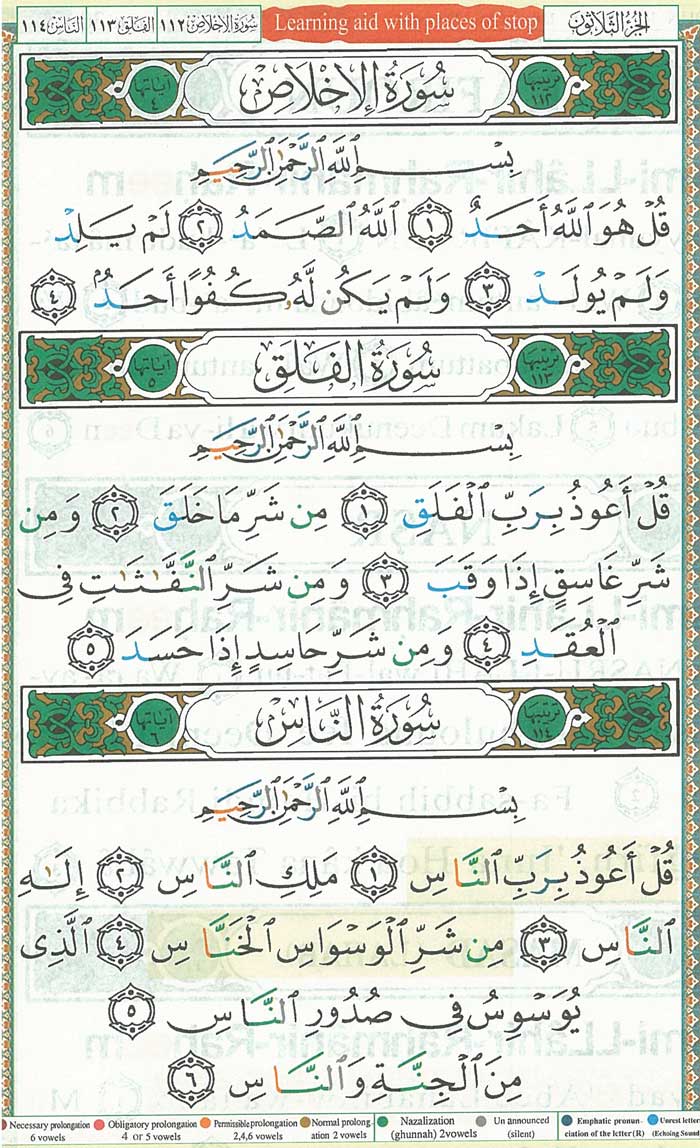 الجزء الثلاثون
Learning aid with places of stop
سورة الإخلاص ١١٢ الفلق ١١٣ الناس ١١٤
ترتيبها ١١٢ سُورَةُ الإِخْلَاصِ آياتها ٤
بِسْمِ ٱللَّهِ ٱلرَّحْمَٰنِ ٱلرَّحِيمِ
قُلْ هُوَ ٱللَّهُ أَحَدٌ ١ ٱللَّهُ ٱلصَّمَدُ ٢ لَمْ يَلِدْ
وَلَمْ يُولَدْ ٣ وَلَمْ يَكُن لَّهُۥ كُفُوًا أَحَدٌۢ ٤
ترتيبها ١١٣ سُورَةُ الفَلَقِ آياتها ٥
بِسْمِ ٱللَّهِ ٱلرَّحْمَٰنِ ٱلرَّحِيمِ
قُلْ أَعُوذُ بِرَبِّ ٱلْفَلَقِ ١ مِن شَرِّ مَا خَلَقَ ٢ وَمِن
شَرِّ غَاسِقٍ إِذَا وَقَبَ ٣ وَمِن شَرِّ ٱلنَّفَّٰثَٰتِ فِى
ٱلْعُقَدِ ٤ وَمِن شَرِّ حَاسِدٍ إِذَا حَسَدَ ٥
ترتيبها ١١٤ سُورَةُ النَّاسِ آياتها ٦
بِسْمِ ٱللَّهِ ٱلرَّحْمَٰنِ ٱلرَّحِيمِ
قُلْ أَعُوذُ بِرَبِّ ٱلنَّاسِ ١ مَلِكِ ٱلنَّاسِ ٢ إِلَٰهِ
ٱلنَّاسِ ٣ مِن شَرِّ ٱلْوَسْوَاسِ ٱلْخَنَّاسِ ٤ ٱلَّذِى
يُوَسْوِسُ فِى صُدُورِ ٱلنَّاسِ ٥
مِنَ ٱلْجِنَّةِ وَٱلنَّاسِ ٦
Necessary prolongation 6 vowels
Obligatory prolongation 4 or 5 vowels
Permissible prolongation 2,4,6 vowels
Normal prolongation 2 vowels
Nazalization (ghunnah) 2vowels
Un announced (silent)
Emphatic pronunciation of the letter (R)
Unrest letter (Echoing Sound